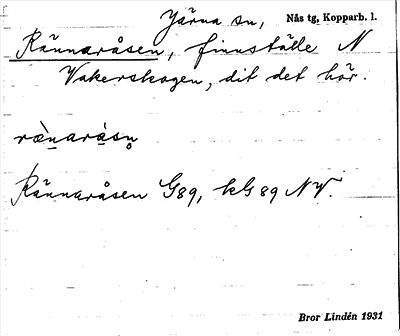 Järna sn, Nås tg, Kopparb. l.
Rännaråsen, finnställe N
Vakerskogen, dit det hör.
rä̀naràsn̥
Rännaråsen G89, kG89 NV.
Bror Lindén 1931